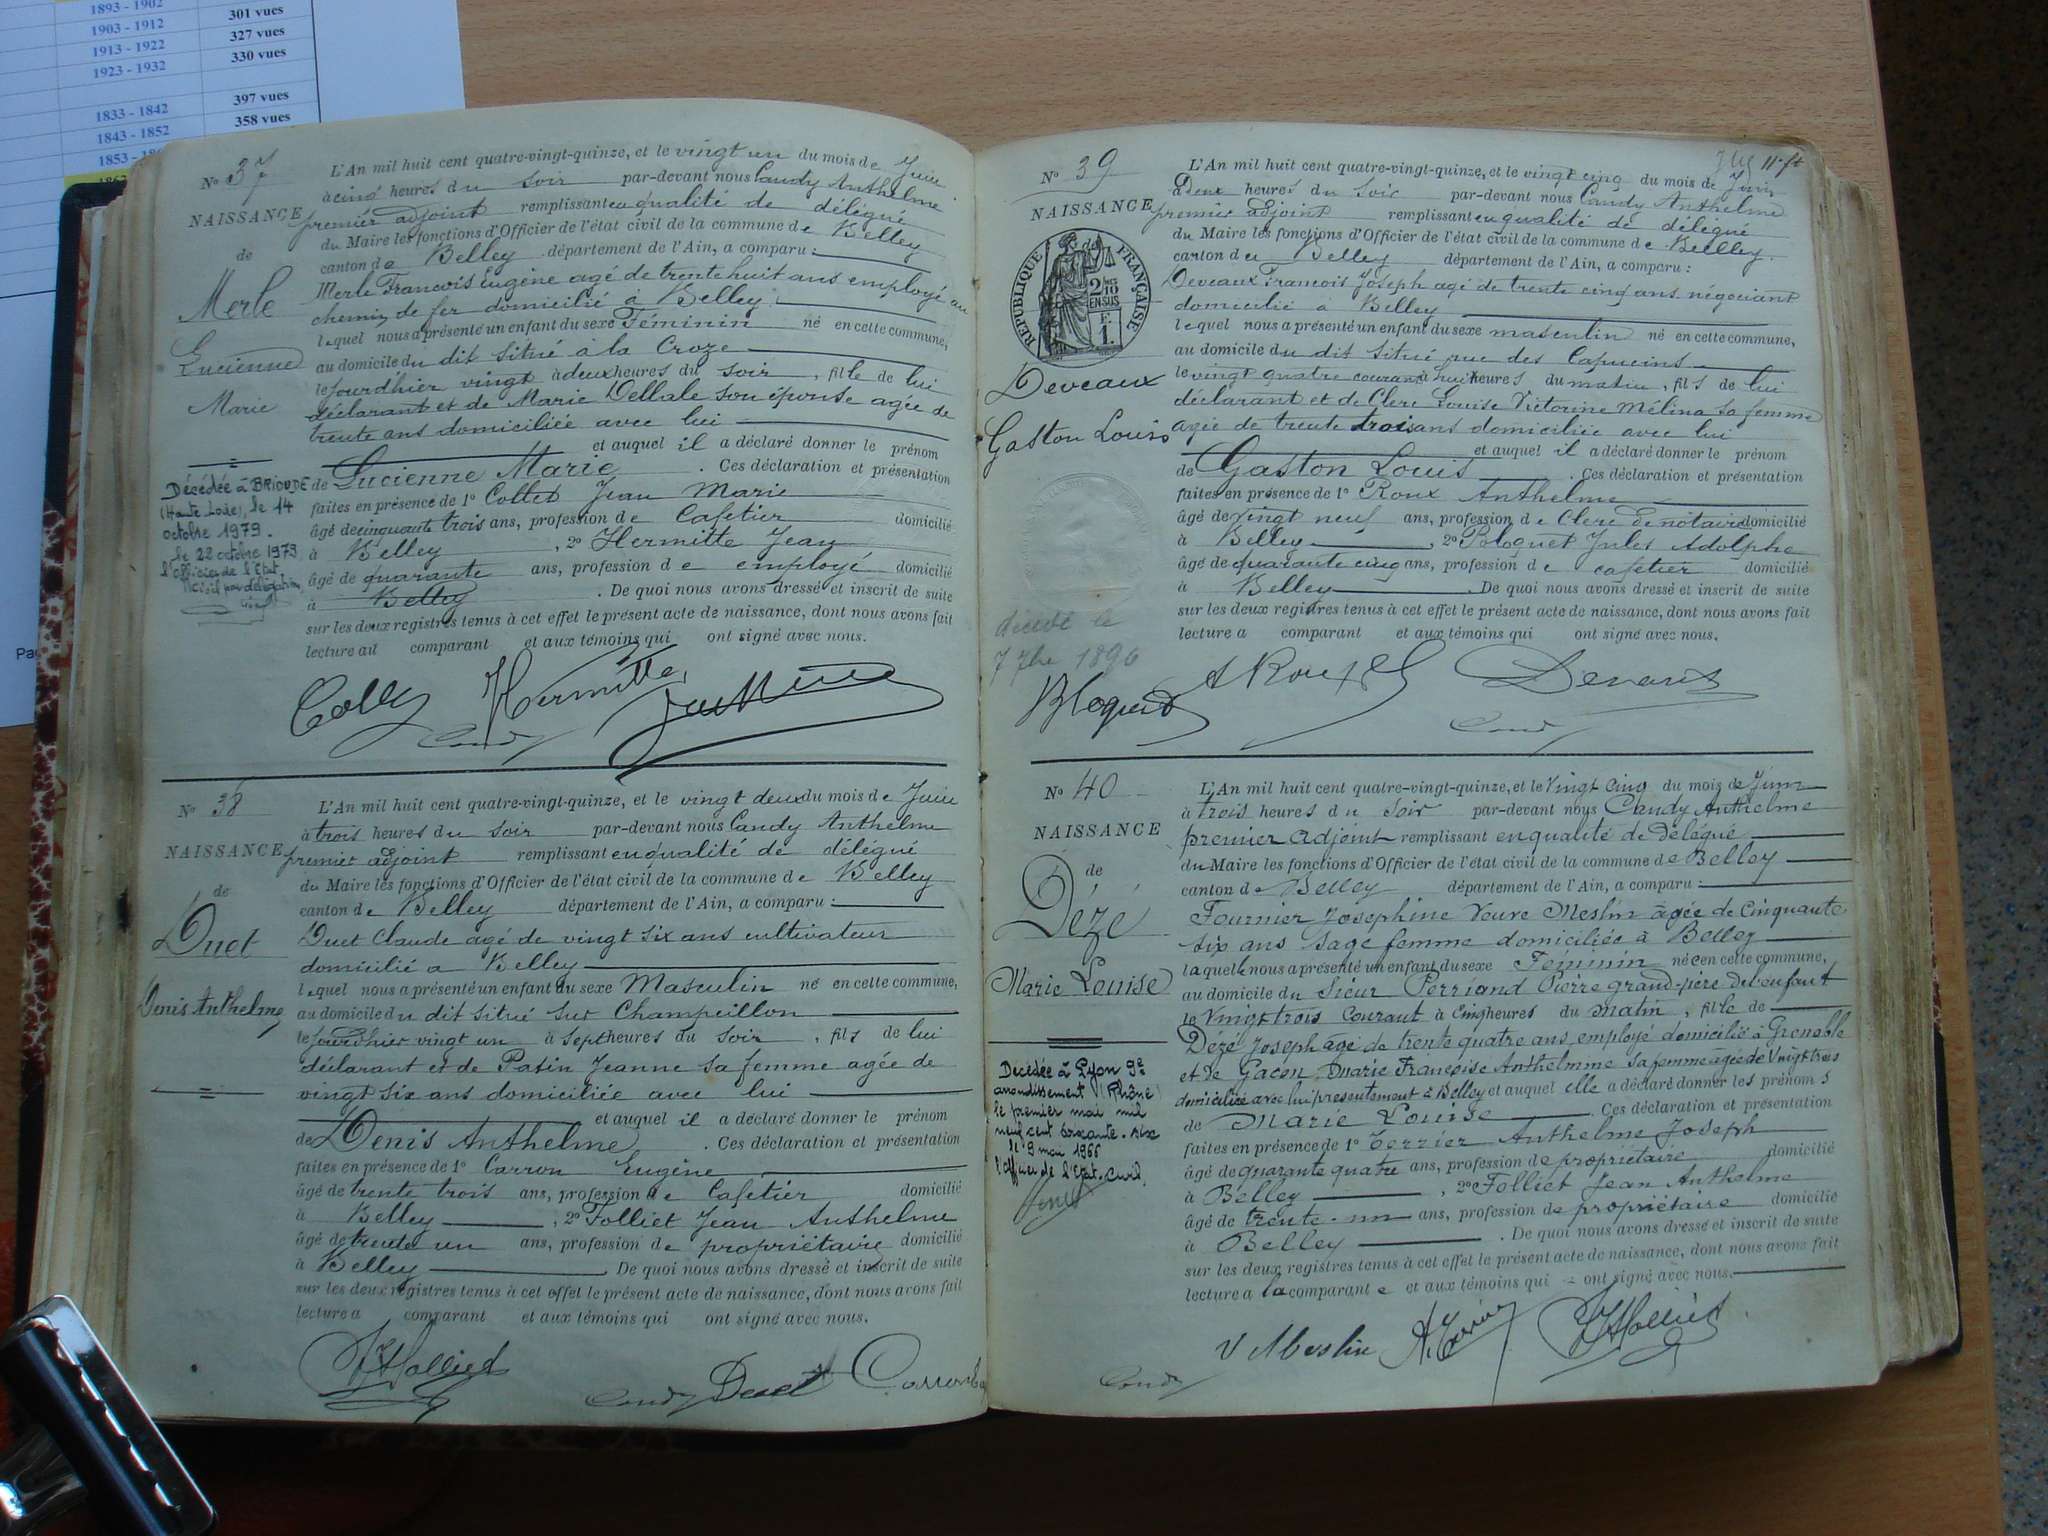 1893 - 1902
1903 - 1912 301 vues
1913 - 1922 327 vues
1923 - 1932 330 vues
1833 - 1842 397 vues
1843 - 1852 358 vues
No 37
NAISSANCE
de
Merle
Lucienne
Marie
L'An mil huit cent quatre-vingt-quinze, et le vingt un du mois de Juin
à cinq heures du soir par-devant nous Candy Anthelme
premier adjoint remplissant en qualité de délégué
du Maire les fonctions d'Officier de l'état civil de la commune de Belley
canton de Belley département de l'Ain, a comparu :
Merle Francois Eugène agé de trente huit ans employé au
chemin de fer domicilié à Belley
lequel nous a présenté un enfant du sexe Féminin né en cette commune,
au domicile du dit situé à la Croze
le jourd'hier vingt à deux heures du soir, fille de lui
déclarant et de Marie Dellale son épouse agée de
trente ans domiciliée avec lui
et auquel il a déclaré donner le prénom
de Lucienne Marie. Ces déclaration et présentation
faites en présence de 1° Collet Jean Marie
âgé de cinquante trois ans, profession de Cafetier domicilié
à Belley, 2° Hermitte Jean
âgé de quarante ans, profession de employé domicilié
à Belley. De quoi nous avons dressé et inscrit de suite
sur les deux registres tenus à cet effet le présent acte de naissance, dont nous avons fait
lecture au comparant et aux témoins qui ont signé avec nous.
Décédée à BRIOUDE
(Haute Loire), le 14
octobre 1979.
le 22 octobre 1979
l'officier de l'Etat
Civil par délégation
Hermitte
Candy
No 38
NAISSANCE
de
Duet
Denis Anthelme
L'An mil huit cent quatre-vingt-quinze, et le vingt deux du mois de Juin
à trois heures du soir par-devant nous Candy Anthelme
premier adjoint remplissant en qualité de délégué
du Maire les fonctions d'Officier de l'état civil de la commune de Belley
canton de Belley département de l'Ain, a comparu :
Duet Claude agé de vingt six ans cultivateur
domicilié a Belley
lequel nous a présenté un enfant du sexe Masculin né en cette commune,
au domicile du dit situé sur Champeillon
le jourdhier vingt un à sept heures du soir, fils de lui
déclarant et de Patin Jeanne sa femme agée de
vingt six ans domiciliée avec lui
et auquel il a déclaré donner le prénom
de Denis Anthelme. Ces déclaration et présentation
faites en présence de 1° Carron Eugène
âgé de trente trois ans, profession de Cafetier domicilié
à Belley, 2° Folliet Jean Anthelme
âgé de trente un ans, profession de propriétaire domicilié
à Belley. De quoi nous avons dressé et inscrit de suite
sur les deux registres tenus à cet effet le présent acte de naissance, dont nous avons fait
lecture a comparant et aux témoins qui ont signé avec nous.
Candy Duet
No 39
NAISSANCE
RÉPUBLIQUE FRANÇAISE
2/10
EN SUS
F.
1.
Deveaux
Gaston Louis
L'An mil huit cent quatre-vingt-quinze, et le vingt cinq du mois de Juin
à Deux heures du soir par-devant nous Candy Anthelme
premier adjoint remplissant en qualité de délégué
du Maire les fonctions d'Officier de l'état civil de la commune de Belley.
canton de Belley département de l'Ain, a comparu :
Deveaux Francois Joseph agé de trente cinq ans négociant
domicilié à Belley
lequel nous a présenté un enfant du sexe masculin né en cette commune,
au domicile du dit situé rue des Capucins
le vingt quatre courant à huit heures du matin, fils de lui
déclarant et de Clerc Louise Victorine Mélina sa femme
agée de trente trois ans domiciliée avec lui
et auquel il a déclaré donner le prénom
de Gaston Louis. Ces déclaration et présentation
faites en présence de 1° Roux Anthelme
âgé de vingt neuf ans, profession de Clerc de notaire domicilié
à Belley, 2° Bloquet Jules Adolphe
âgé de quarante cinq ans, profession de cafetier domicilié
à Belley. De quoi nous avons dressé et inscrit de suite
sur les deux registres tenus à cet effet le présent acte de naissance, dont nous avons fait
lecture a comparant et aux témoins qui ont signé avec nous.
décédé le
7 7bre 1896
Bloquet A Roux
Candy
No 40
NAISSANCE
de
Dézé
Marie Louise
L'An mil huit cent quatre-vingt-quinze, et le Vingt cinq du mois de Juin
à trois heures du soir par-devant nous Candy Anthelme
premier adjoint remplissant en qualité de délégué
du Maire les fonctions d'Officier de l'état civil de la commune de Belley
canton de Belley département de l'Ain, a comparu :
Fournier Josephine Veuve Meslin âgée de Cinquante
six ans sage femme domiciliée à Belley
laquelle nous a présenté un enfant du sexe Feminin née en cette commune,
au domicile du Sieur Perriand Pierre grand-père de l'enfant
le Vingt trois courant à Cinq heures du matin, fille de
Dézé Joseph âgé de trente quatre ans employé domicilié à Grenoble
et de Gacon Marie Françoise Anthelmme sa femme agée de Vingt trois
domiciliée avec lui presentement à Belley et auquel elle a déclaré donner les prénoms
de Marie Louise. Ces déclaration et présentation
faites en présence de 1° Terrier Anthelme Joseph
âgé de quarante quatre ans, profession de propriétaire domicilié
à Belley, 2° Folliet Jean Anthelme
âgé de trente-un ans, profession de propriétaire domicilié
à Belley. De quoi nous avons dressé et inscrit de suite
sur les deux registres tenus à cet effet le présent acte de naissance, dont nous avons fait
lecture a la comparante et aux témoins qui ont signé avec nous.
Décédée à Lyon 9e
arrondissement (Rhône)
le premier mai mil
neuf cent soixante-six
le 9 mai 1966
l'officier de l'Etat-Civil,
V Meslin
Candy